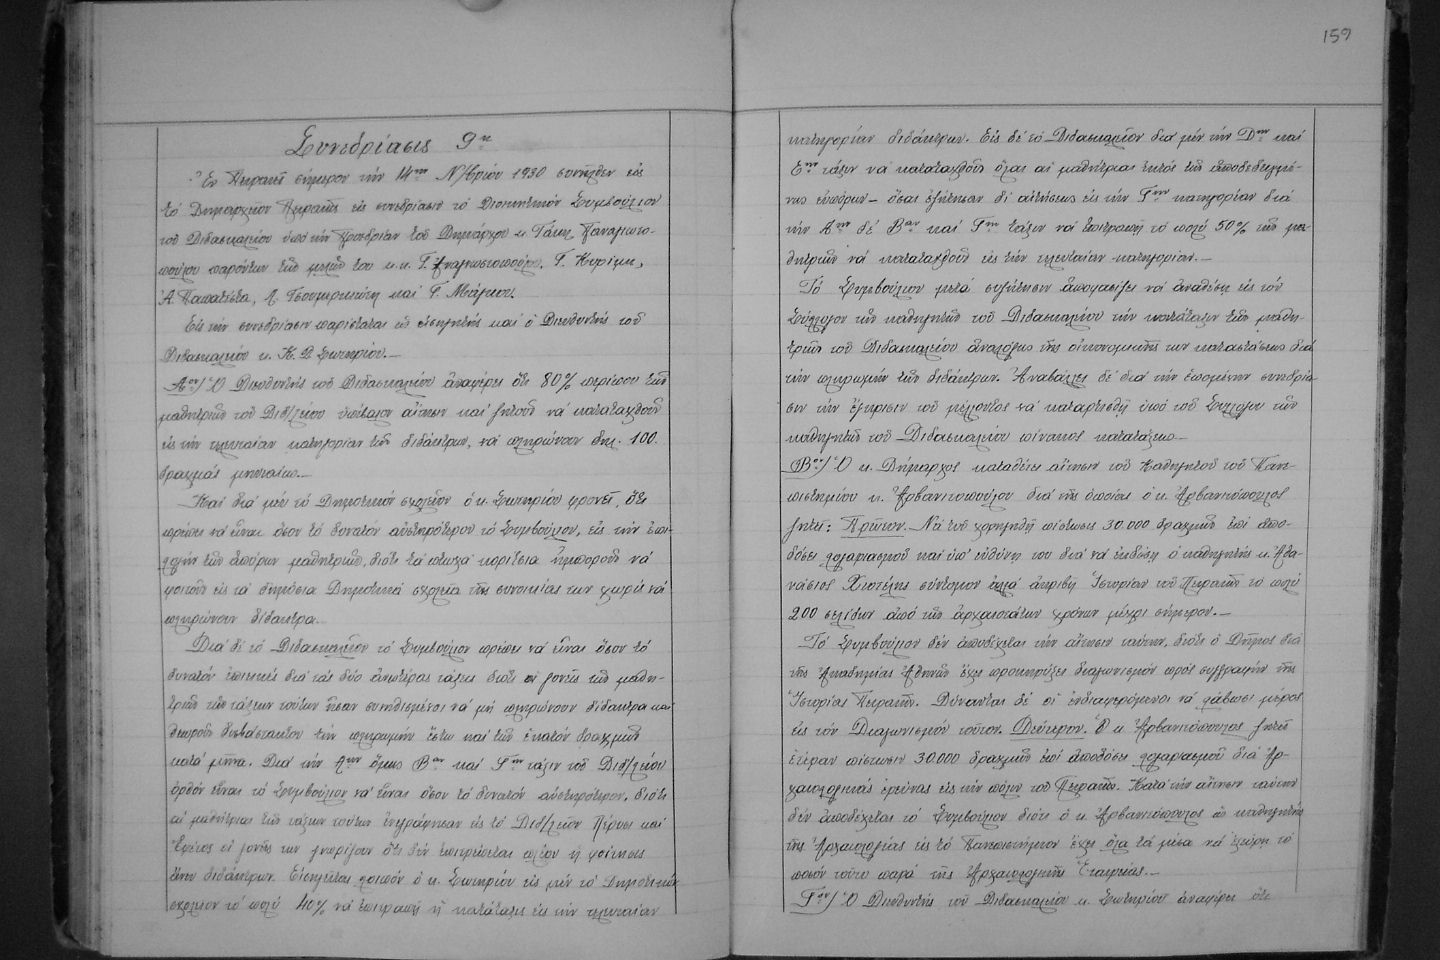 159
Συνεδρίασις 9η
Ἐν Πειραιεῖ σήμερον τὴν 14ην Ν/βρίου 1930 συνῆλθεν εἰς
τὸ Δημαρχεῖον Πειραιῶς εἰς συνεδρίασιν τὸ Διοικητικὸν Συμβούλιον
τοῦ Διδασκαλείου ὑπὸ τὴν Προεδρίαν τοῦ Δημάρχου κ. Τάκη Παναγιωτο-
πούλου παρόντων τῶν μελῶν του κ.κ. Γ. Γ. Κυρίμη,
Ἀ. Παπατσίτα, Λ. καὶ Γ.
Εἰς τὴν συνεδρίασιν παρίσταται ὡς εἰσηγητὴς καὶ ὁ Διευθυντὴς τοῦ
Διδασκαλείου κ. Κ. Δ. Σωτηρίου.—
Αον/ Ὁ Διευθυντὴς τοῦ Διδασκαλείου ἀναφέρει ὅτι 80% περίπου τῶν
μαθητριῶν τοῦ Διδ/λείου ὑπέβαλον αἴτησιν καὶ ζητοῦν νὰ καταταχθοῦν
εἰς τὴν τελευταίαν κατηγορίαν τῶν διδάκτρων, νὰ πληρώνουν δηλ. 100
δραχμὰς μηνιαίως.—
Καὶ διὰ μὲν τὸ Δημοτικὸν σχολεῖον ὁ κ. Σωτηρίου φρονεῖ, ὅτι
πρέπει νὰ εἶναι ὅσον τὸ δυνατὸν αὐστηρότερον τὸ Συμβούλιον, εἰς τὴν ἐπι-
λογὴν τῶν ἀπόρων μαθητριῶν, διότι τὰ πτωχὰ κορίτσια ἠμποροῦν νὰ
φοιτοῦν εἰς τὰ δημόσια Δημοτικὰ σχολεῖα τῆς συνοικίας των χωρὶς νὰ
πληρώνουν δίδακτρα.
Διὰ δὲ τὸ Διδασκαλεῖον τὸ Συμβούλιον πρέπει νὰ εἶναι ὅσον τὸ
δυνατὸν ἐπιεικὲς διὰ τὰς δύο ἀνωτέρας τάξεις διότι οἱ γονεῖς τῶν μαθη-
τριῶν τῶν τάξεων τούτων ἦσαν συνηθισμένοι νὰ μὴ πληρώνουν δίδακτρα καὶ
θεωροῦν δυσβάστακτον τὴν πληρωμὴν ἔστω καὶ τῶν ἑκατὸν δραχμῶν
κατὰ μῆνα. Διὰ τὴν Αην ὅμως Βαν καὶ Γην τάξιν τοῦ Διδ/λείου
ὀρθὸν εἶναι τὸ Συμβούλιον νὰ εἶναι ὅσον τὸ δυνατὸν αὐστηρότερον, διότι
αἱ μαθήτριαι τῶν τάξεων τούτων ἐνεγράφησαν εἰς τὸ Διδ/λεῖον πέρυσι καὶ
ἐφέτος οἱ γονεῖς των γνωρίζουν ὅτι δὲν ἐπιτρέπεται πλέον ἡ φοίτησις
ἄνευ διδάκτρων. Εἰσηγεῖται λοιπὸν ὁ κ. Σωτηρίου εἰς μὲν τὸ Δημοτικὸν
σχολεῖον τὸ πολὺ 40% νὰ ἐπιτραπῇ ἡ κατάταξις εἰς τὴν τελευταίαν
κατηγορίαν διδάκτρων. Εἰς δὲ τὸ Διδασκαλεῖον διὰ μὲν τὴν Δην καὶ
Εην τάξιν νὰ καταταχθοῦν ὅλαι αἱ μαθήτριαι ἐκτὸς τῶν ἀποδεδειγμέ-
νως εὐπόρων — ὅσαι ἐζήτησαν δι' αἰτήσεως εἰς τὴν Γην κατηγορίαν διὰ
τὴν Αην δὲ Βαν καὶ Γην τάξιν νὰ ἐπιτραπῇ τὸ πολὺ 50% τῶν μα-
θητριῶν νὰ καταταχθοῦν εἰς τὴν τελευταίαν κατηγορίαν.—
Τὸ Συμβούλιον μετὰ συζήτησιν ἀποφασίζει νὰ ἀναθέσῃ εἰς τὸν
Σύλλογον τῶν καθηγητῶν τοῦ Διδασκαλείου τὴν κατάταξιν τῶν μαθη-
τριῶν τοῦ Διδασκαλείου ἀναλόγως τῆς οἰκονομικῆς των καταστάσεως διὰ
τὴν πληρωμὴν τῶν διδάκτρων. Ἀναβάλλει δὲ διὰ τὴν ἑπομένην συνεδρία-
σιν τὴν ἔγκρισιν τοῦ μέλλοντος νὰ καταρτισθῇ ὑπὸ τοῦ Συλλόγου τῶν
καθηγητῶν τοῦ Διδασκαλείου πίνακος κατατάξεως.—
Βον/ Ὁ κ. Δήμαρχος καταθέτει αἴτησιν τοῦ Καθηγητοῦ τοῦ Πανε-
πιστημίου κ. Ἀρβανιτοπούλου διὰ τῆς ὁποίας ὁ κ. Ἀρβανιτόπουλος
ζητεῖ: Πρῶτον. Νὰ τοῦ χορηγηθῇ πίστωσις 30.000 δραχμῶν ἐπὶ ἀπο-
δόσει λογαριασμοῦ καὶ ὑπ' εὐθύνῃ του διὰ νὰ ἐκδώσῃ ὁ καθηγητὴς κ. Ἀθα-
νάσιος Χριστέλης σύντομον ἀλλὰ ἀκριβῆ Ἱστορίαν τοῦ Πειραιῶς τὸ πολὺ
200 σελίδων ἀπὸ τῶν ἀρχαιοτάτων χρόνων μέχρι σήμερον.—
Τὸ Συμβούλιον δὲν ἀποδέχεται τὴν αἴτησιν ταύτην, διότι ὁ Δῆμος διὰ
τῆς Ἀκαδημίας Ἀθηνῶν ἔχει προκηρύξει διαγωνισμὸν πρὸς συγγραφὴν τῆς
Ἱστορίας Πειραιῶς. Δύνανται δὲ οἱ ἐνδιαφερόμενοι νὰ λάβωσι μέρος
εἰς τὸν Διαγωνισμὸν τοῦτον. Δεύτερον. Ὁ κ. Ἀρβανιτόπουλος ζητεῖ
ἑτέραν πίστωσιν 30.000 δραχμῶν ἐπὶ ἀποδόσει λογαριασμοῦ διὰ Ἀρ-
χαιολογικὰς ἐρεύνας εἰς τὴν πόλιν τοῦ Πειραιῶς. Κατὰ τὴν αἴτησιν ταύτην
δὲν ἀποδέχεται τὸ Συμβούλιον διότι ὁ κ. Ἀρβανιτόπουλος ὡς καθηγητὴς
τῆς Ἀρχαιολογίας εἰς τὸ Πανεπιστήμιον ἔχει ὅλα τὰ μέσα νὰ εὕρῃ τὸ
ποσὸν τοῦτο παρὰ τῆς Ἀρχαιολογικῆς Ἑταιρείας.—
Γον/ Ὁ Διευθυντὴς τοῦ Διδασκαλείου κ. Σωτηρίου ἀναφέρει ὅτι